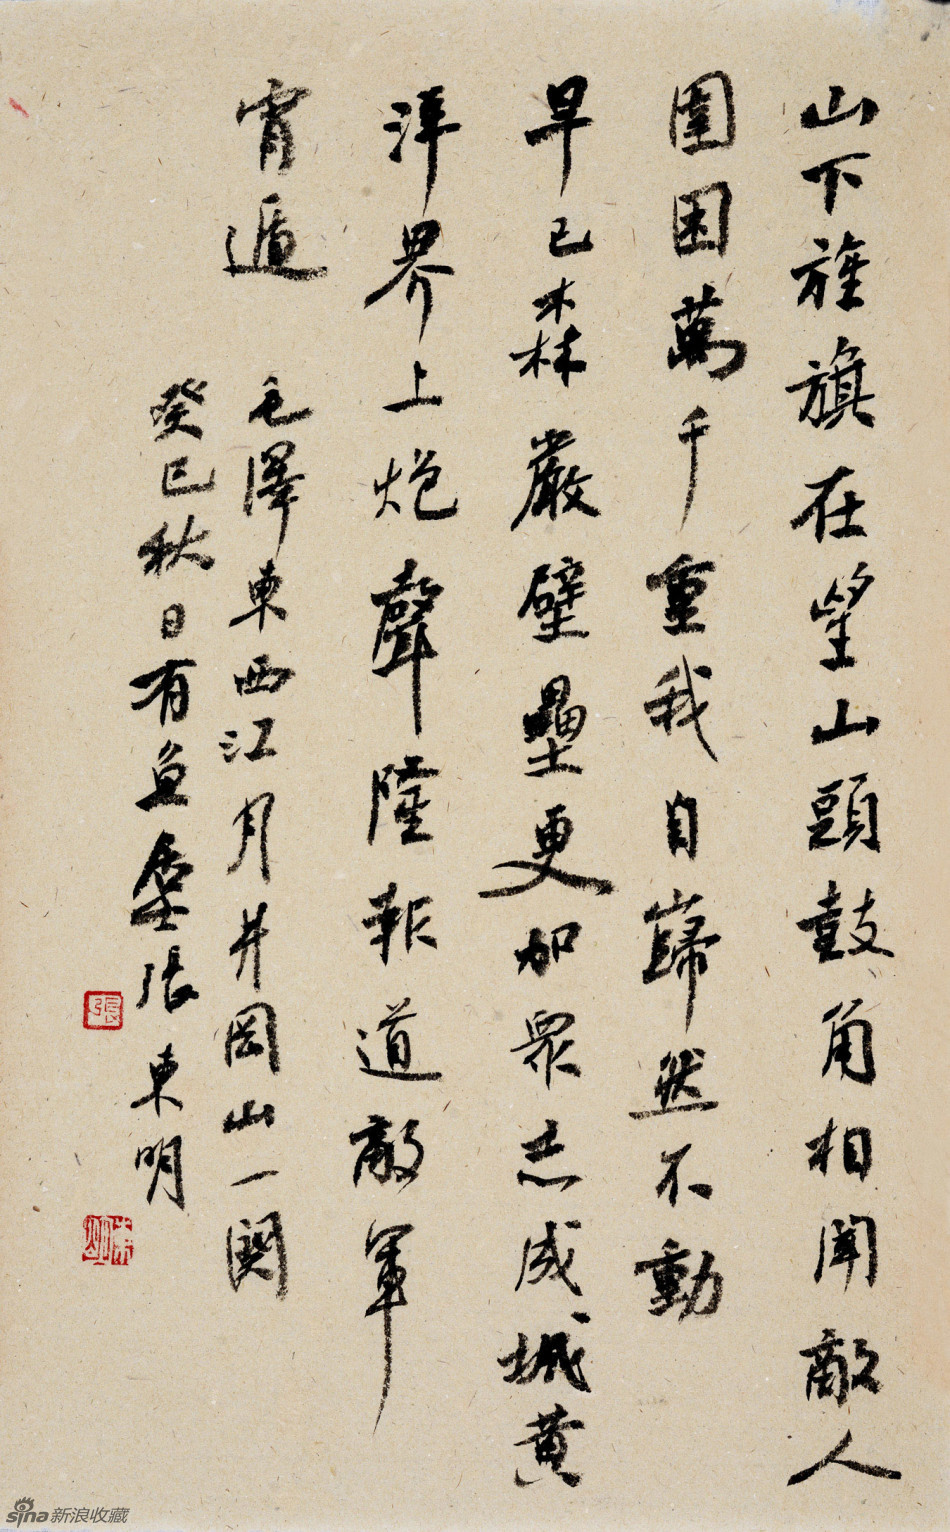 山下旌旗在望山頭鼓角相聞敵人
圍困萬千重我自巋然不動
早已森嚴壁壘更加眾志成城黃
洋界上炮聲隆報道敵軍
宵遁
毛澤東西江月井岡山一闋
癸巳秋日有魚張東明
張
東明
sina新浪收藏